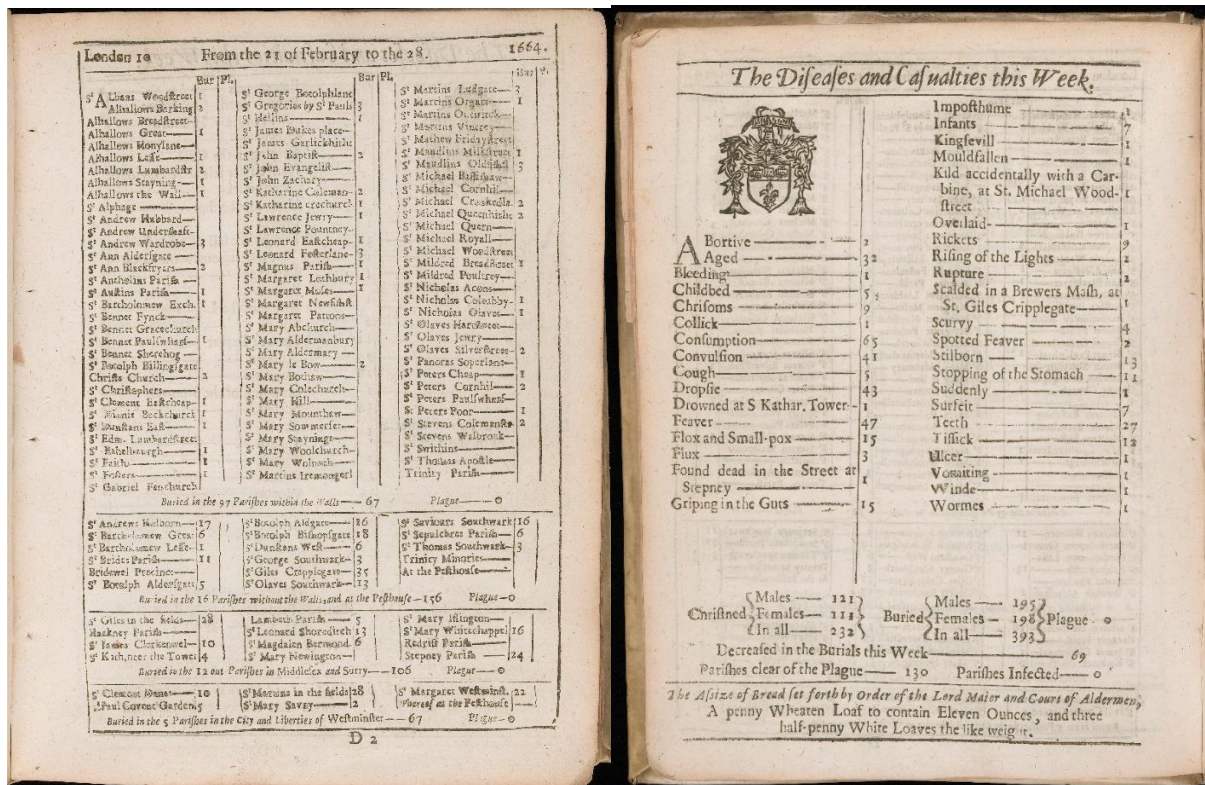 London 10 From the 21 of February to the 28. 1664.
Bur | Pl.
Sᵗ Albans Woodstreet 1
Alhallows Barking 2
Alhallows Breadstreet
Alhallows Great 1
Alhallows Honylane
Alhallows Lesse 1
Alhallows Lumbardstr 2
Alhallows Stayning 1
Alhallows the Wall 1
Sᵗ Alphage
Sᵗ Andrew Hubbard
Sᵗ Andrew Undershaft
Sᵗ Andrew Wardrobe 3
Sᵗ Ann Aldersgate
Sᵗ Ann Blackfryers 2
Sᵗ Antholins Parish
Sᵗ Austins Parish 1
Sᵗ Bartholomew Exch. 1
Sᵗ Bennet Fynck
Sᵗ Bennet Gracechurch
Sᵗ Bennet Paulswharf 1
Sᵗ Bennet Sherehog
Sᵗ Botolph Billingsgate
Christs Church 2
Sᵗ Christophers
Sᵗ Clement Eastcheap 1
Sᵗ Dionis Backchurch 1
Sᵗ Dunstans East 1
Sᵗ Edm. Lumbardstreet
Sᵗ Ethelburgh 1
Sᵗ Faiths 1
Sᵗ Fosters 1
Sᵗ Gabriel Fenchurch
Bur | Pl.
Sᵗ George Botolphlane
Sᵗ Gregories by Sᵗ Pauls 3
Sᵗ Hellins 1
Sᵗ James Dukes place
Sᵗ James Garlickhithe
Sᵗ John Baptist 2
Sᵗ John Evangelist
Sᵗ John Zachary
Sᵗ Katharine Coleman 2
Sᵗ Katharine crechurch 1
Sᵗ Lawrence Jewry 1
Sᵗ Lawrence Pountney
Sᵗ Leonard Eastcheap 1
Sᵗ Leonard Fosterlane 3
Sᵗ Magnus Parish 1
Sᵗ Margaret Lothbury 1
Sᵗ Margaret Moses 1
Sᵗ Margaret Newfishst
Sᵗ Margaret Pattons
Sᵗ Mary Abchurch
Sᵗ Mary Aldermanbury
Sᵗ Mary Aldermary
Sᵗ Mary le Bow 2
Sᵗ Mary Bothaw
Sᵗ Mary Colechurch
Sᵗ Mary Hill
Sᵗ Mary Mounthaw
Sᵗ Mary Sommerset
Sᵗ Mary Staynings
Sᵗ Mary Woolchurch
Sᵗ Mary Wolnoth
Sᵗ Martins Iremongerl
Bur
Sᵗ Martins Ludgate 3
Sᵗ Martins Orgars 1
Sᵗ Martins Outwitch
Sᵗ Martins Vintrey
Sᵗ Mathew Fridaystreet
Sᵗ Maudlins Milkstreet 1
Sᵗ Maudlins Oldfishst 3
Sᵗ Michael Bassishaw
Sᵗ Michael Cornhil
Sᵗ Michael Crookedla. 2
Sᵗ Michael Queenhithe 2
Sᵗ Michael Quern
Sᵗ Michael Royall
Sᵗ Michael Woodstreet
Sᵗ Mildred Breadstreet 1
Sᵗ Mildred Poultrey
Sᵗ Nicholas Acons
Sᵗ Nicholas Coleabby 1
Sᵗ Nicholas Olaves 1
Sᵗ Olaves Hartstreet
Sᵗ Olaves Jewry
Sᵗ Olaves Silverstreet 2
Sᵗ Pancras Soperlane
Sᵗ Peters Cheap 1
Sᵗ Peters Cornhil 2
Sᵗ Peters Paulswharf
Sᵗ Peters Poor 1
Sᵗ Stevens Colemanstr 2
Sᵗ Stevens Walbrook
Sᵗ Swithins
Sᵗ Thomas Apostle
Trinity Parish
Buried in the 97 Parishes within the Walls — 67 Plague — 0
Sᵗ Andrews Holborn 17
Sᵗ Bartholomew Great 6
Sᵗ Bartholomew Lesse 1
Sᵗ Brides Parish 11
Bridewel Precinct
Sᵗ Botolph Aldersgate 5
Sᵗ Botolph Aldgate 16
Sᵗ Botolph Bishopsgate 18
Sᵗ Dunstans West 6
Sᵗ George Southwark 3
Sᵗ Giles Cripplegate 35
Sᵗ Olaves Southwark 13
Sᵗ Saviours Southwark 16
Sᵗ Sepulchres Parish 6
Sᵗ Thomas Southwark 3
Trinity Minories
At the Pesthouse
Buried in the 16 Parishes without the Walls, and at the Pesthouse — 156 Plague — 0
Sᵗ Giles in the fields 28
Hackney Parish
Sᵗ James Clerkenwel 10
Sᵗ Kath. neer the Tower 4
Lambeth Parish 5
Sᵗ Leonard Shoreditch 13
Sᵗ Magdalen Bermond. 6
Sᵗ Mary Newington
Sᵗ Mary Islington
Sᵗ Mary Whitechappel 16
Redriff Parish
Stepney Parish 24
Buried in the 12 out Parishes in Middlesex and Surry — 106 Plague — 0
Sᵗ Clement Danes 10
Sᵗ Paul Covent Garden 5
Sᵗ Martins in the fields 28
Sᵗ Mary Savoy 2
Sᵗ Margaret Westminst. 22
Whereof at the Pesthouse
Buried in the 5 Parishes in the City and Liberties of Westminster — 67 Plague — 0
D 2
The Diſeaſes and Caſualties this Week.
Abortive 2
Aged 32
Bleeding 1
Childbed 5
Chriſoms 9
Collick 1
Conſumption 65
Convulſion 41
Cough 5
Dropſie 43
Drowned at S Kathar. Tower 1
Feaver 47
Flox and Small-pox 15
Flux 3
Found dead in the Street at
Stepney 1
Griping in the Guts 15
Impoſthume
Infants 7
Kingſevill 1
Mouldfallen 1
Kild accidentally with a Car-
bine, at St. Michael Wood-
ſtreet 1
Overlaid 1
Rickets 9
Riſing of the Lights 2
Rupture 2
Scalded in a Brewers Maſh, at
St. Giles Cripplegate 1
Scurvy 4
Spotted Feaver 2
Stilborn 13
Stopping of the Stomach 11
Suddenly 1
Surfeit 7
Teeth 27
Tiſſick 12
Ulcer 1
Vomiting 1
Winde 1
Wormes 1
Chriſtned Males 121 Females 111 In all 232
Buried Males 195 Females 198 In all 393 Plague 0
Decreaſed in the Burials this Week 69
Pariſhes clear of the Plague — 130 Pariſhes Infected — 0
The Aſſize of Bread ſet forth by Order of the Lord Maier and Court of Aldermen,
A penny Wheaten Loaf to contain Eleven Ounces, and three
half-penny White Loaves the like weight.